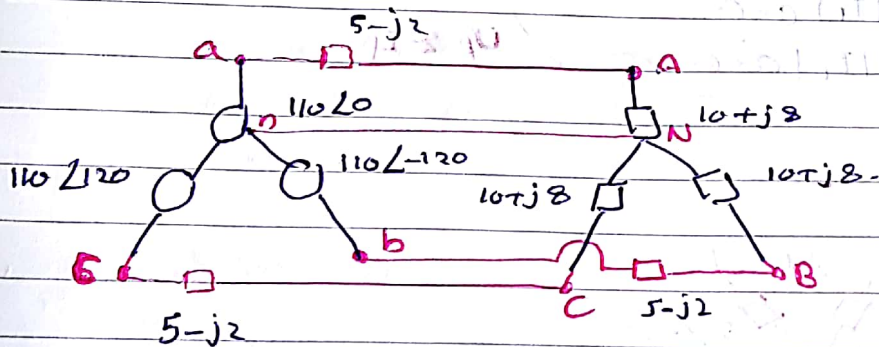 5-j2
a
A
110∠0
n
10+j8
N
110∠120
110∠-120
10+j8
10+j8
b
B
C
5-j2
5-j2